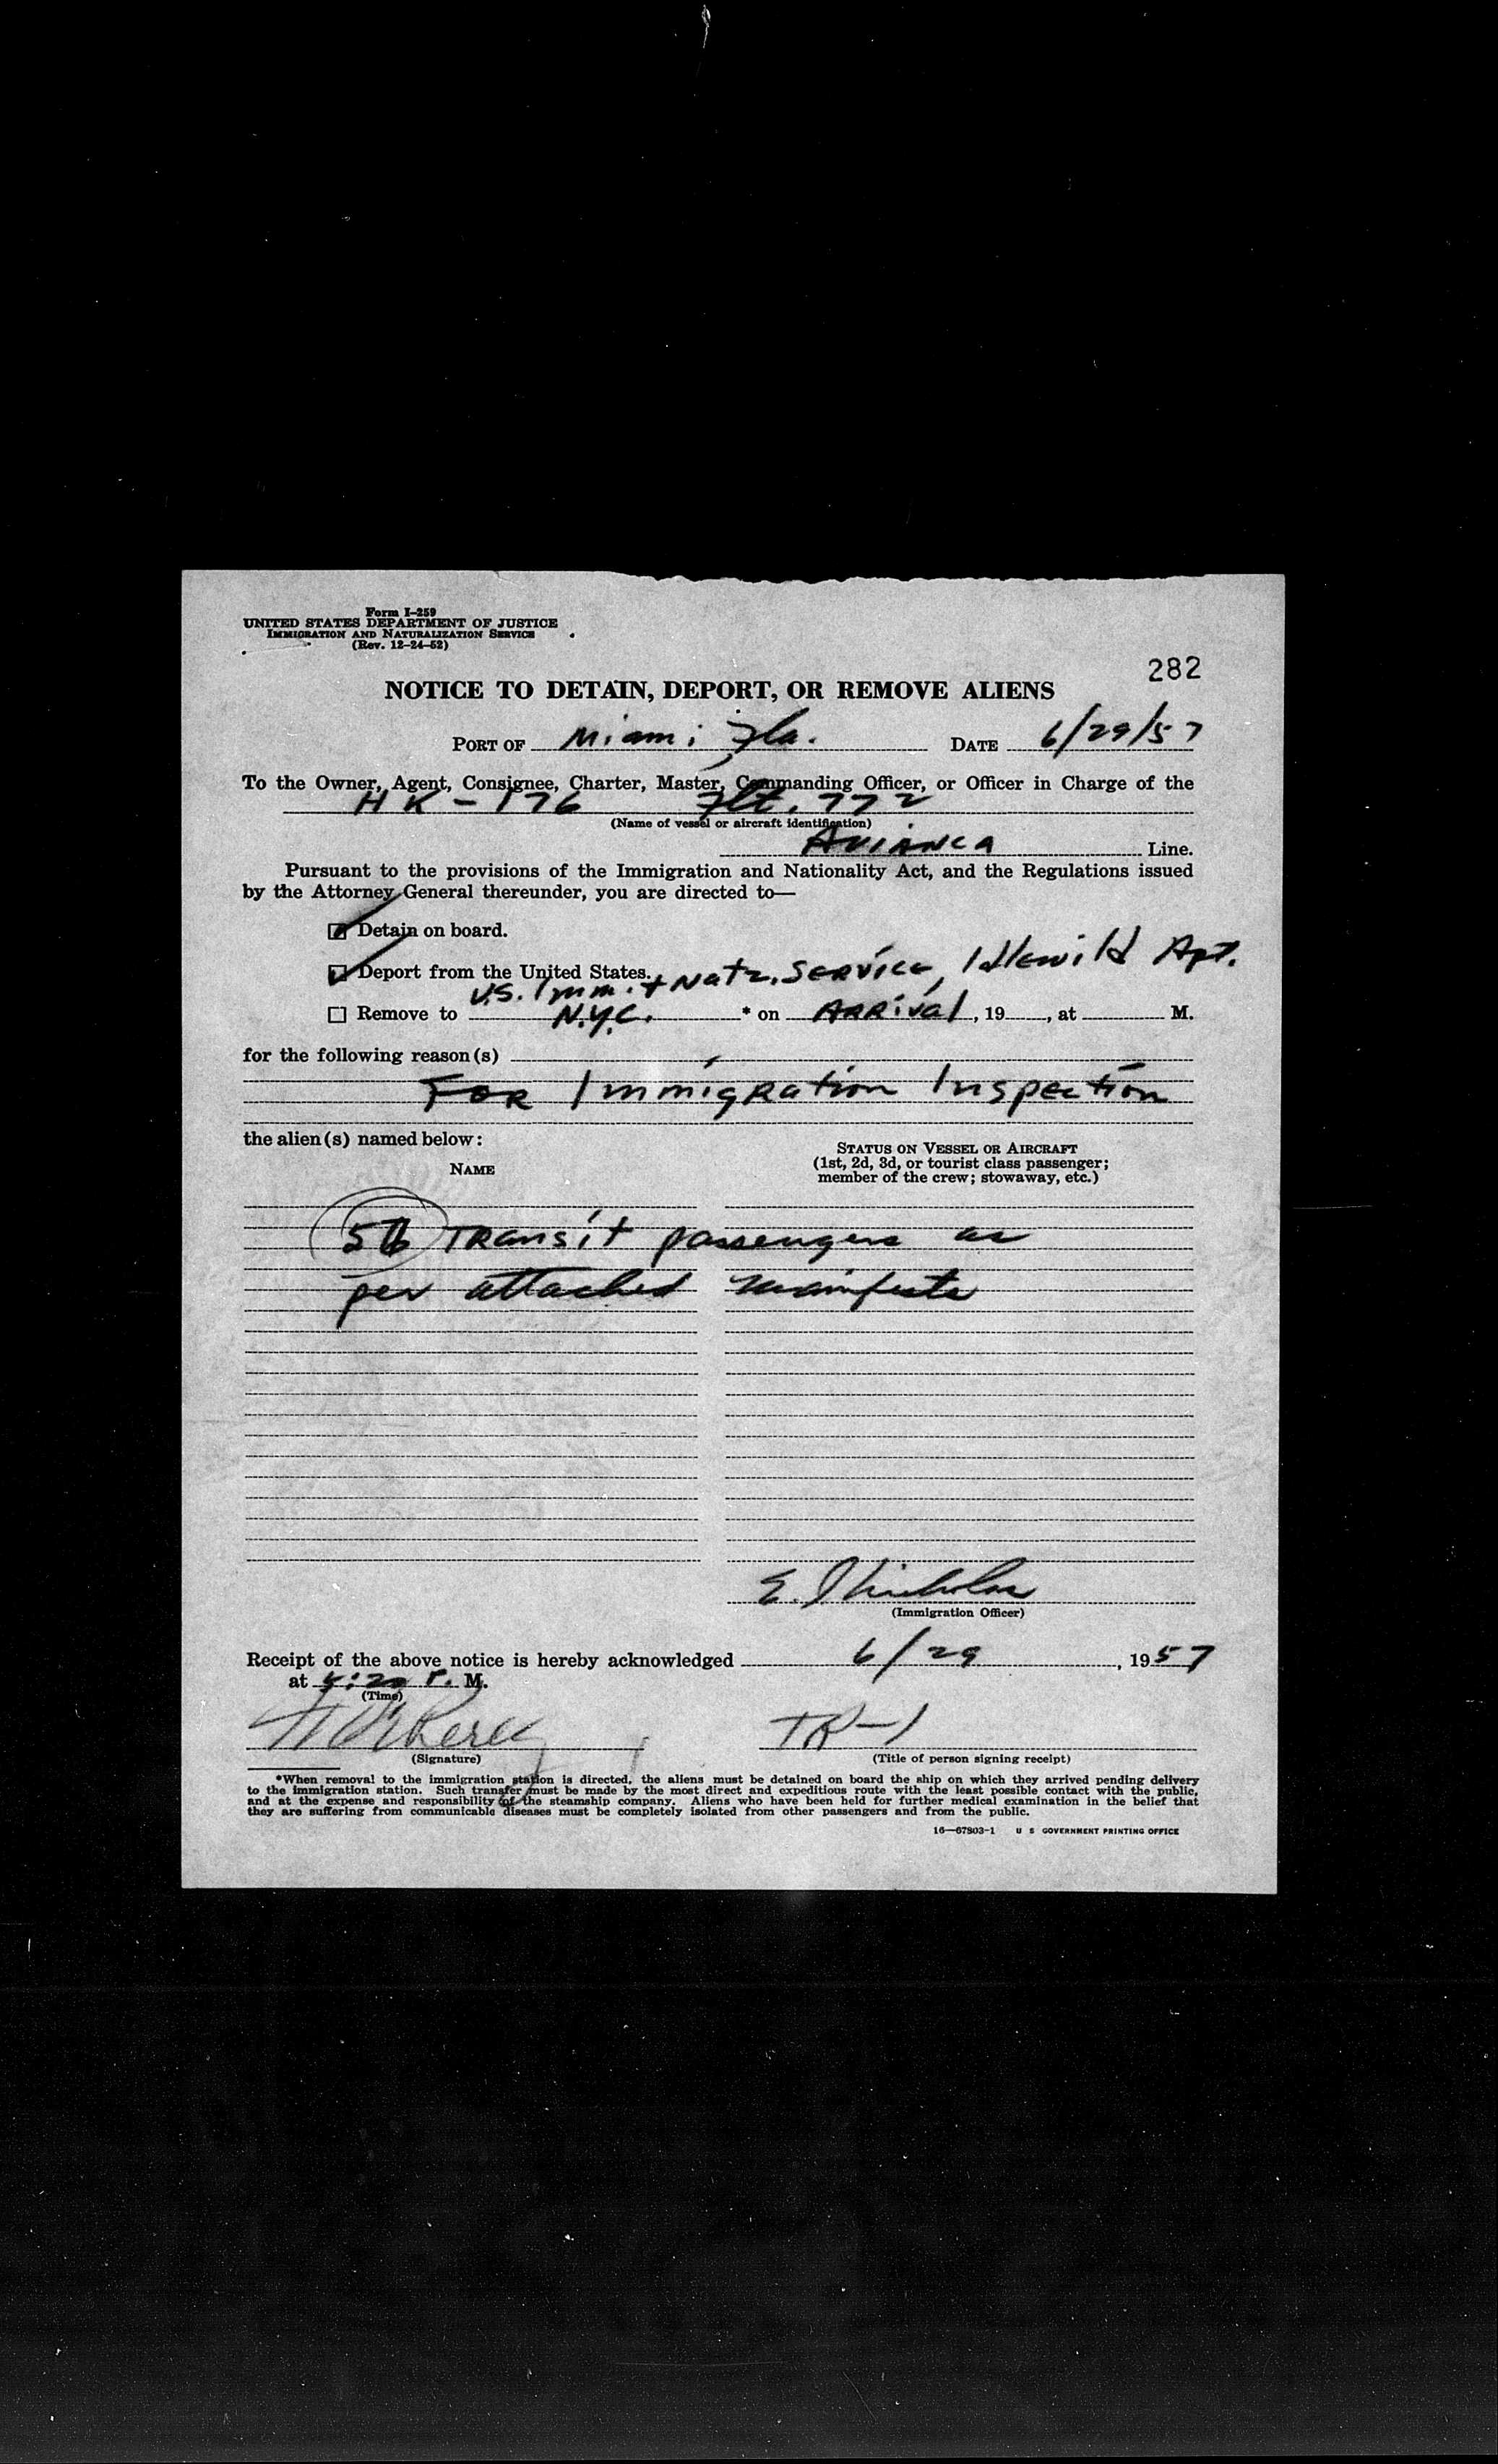 Form I-259
UNITED STATES DEPARTMENT OF JUSTICE
IMMIGRATION AND NATURALIZATION SERVICE
(Rev. 12-24-52)
282
NOTICE TO DETAIN, DEPORT, OR REMOVE ALIENS
PORT OF Miami, Fla. DATE 6/29/57
To the Owner, Agent, Consignee, Charter, Master, Commanding Officer, or Officer in Charge of the
HK-176 Flt. 772
(Name of vessel or aircraft identification)
AVIANCA Line.
Pursuant to the provisions of the Immigration and Nationality Act, and the Regulations issued
by the Attorney General thereunder, you are directed to—
Detain on board.
Deport from the United States.
U.S. Imm. + Natz. Service, Idlewild Apt.
Remove to N.Y.C. * on Arrival, 19, at M.
for the following reason(s)
For Immigration Inspection
the alien(s) named below:
NAME
STATUS ON VESSEL OR AIRCRAFT
(1st, 2d, 3d, or tourist class passenger;
member of the crew; stowaway, etc.)
Transit passengers as
per attached manifests
E. Nicholas
(Immigration Officer)
Receipt of the above notice is hereby acknowledged 6/29, 1957
at :20 P. M.
(Time)
TR-1
(Signature)
(Title of person signing receipt)
*When removal to the immigration station is directed, the aliens must be detained on board the ship on which they arrived pending delivery
to the immigration station. Such transfer must be made by the most direct and expeditious route with the least possible contact with the public,
and at the expense and responsibility of the steamship company. Aliens who have been held for further medical examination in the belief that
they are suffering from communicable diseases must be completely isolated from other passengers and from the public.
16—67803-1 U S GOVERNMENT PRINTING OFFICE